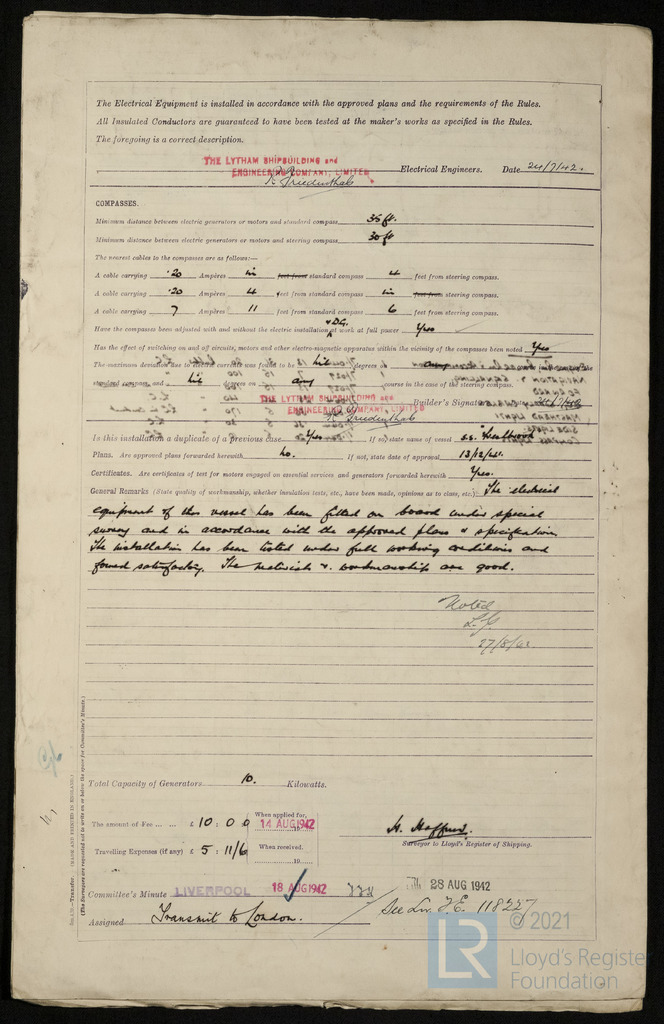 The Electrical Equipment is installed in accordance with the approved plans and the requirements of the Rules.
All Insulated Conductors are guaranteed to have been tested at the maker's works as specified in the Rules.
The foregoing is a correct description.
THE LYTHAM SHIPBUILDING and
ENGINEERING COMPANY, LIMITED Electrical Engineers. Date 24/7/42.
COMPASSES.
Minimum distance between electric generators or motors and standard compass 35 ft.
Minimum distance between electric generators or motors and steering compass 30 ft
The nearest cables to the compasses are as follows:—
A cable carrying .20 Ampères in feet from standard compass 4 feet from steering compass.
A cable carrying .20 Ampères 4 feet from standard compass in feet from steering compass.
A cable carrying 7 Ampères 11 feet from standard compass 6 feet from steering compass.
Have the compasses been adjusted with and without the electric installation & D.G. at work at full power Yes
Has the effect of switching on and off circuits, motors and other electro-magnetic apparatus within the vicinity of the compasses been noted Yes
The maximum deviation due to electric currents was found to be nil degrees on any
standard compass, and nil degrees on any course in the case of the steering compass.
THE LYTHAM SHIPBUILDING and
ENGINEERING COMPANY, LIMITED Builder's Signature.
Is this installation a duplicate of a previous case Yes If so, state name of vessel s.s.
Plans. Are approved plans forwarded herewith No. If not, state date of approval 13/12/41.
Certificates. Are certificates of test for motors engaged on essential services and generators forwarded herewith Yes.
General Remarks (State quality of workmanship, whether insulation tests, etc., have been made, opinions as to class, etc.) The electrical
equipment of this vessel has been fitted on board under special
survey and in accordance with the approved plans & specification.
The installation has been tested under full working conditions and
found satisfactory. The materials & workmanship are good.
Noted
27/8/42
Total Capacity of Generators 10. Kilowatts.
The amount of Fee ... ... £ 10 : 0 0 When applied for, 14 AUG 1942
Travelling Expenses (if any) £ 5 : 11/6 When received, 19
Surveyor to Lloyd's Register of Shipping.
Committee's Minute LIVERPOOL 18 AUG 1942 28 AUG 1942
Assigned Transmit to London. See Lv. F.E. 118227
(MADE AND PRINTED IN ENGLAND.)
(The Surveyors are requested not to write on or below the space for Committee's Minute.)
© 2021
LR
Lloyd's Register
Foundation